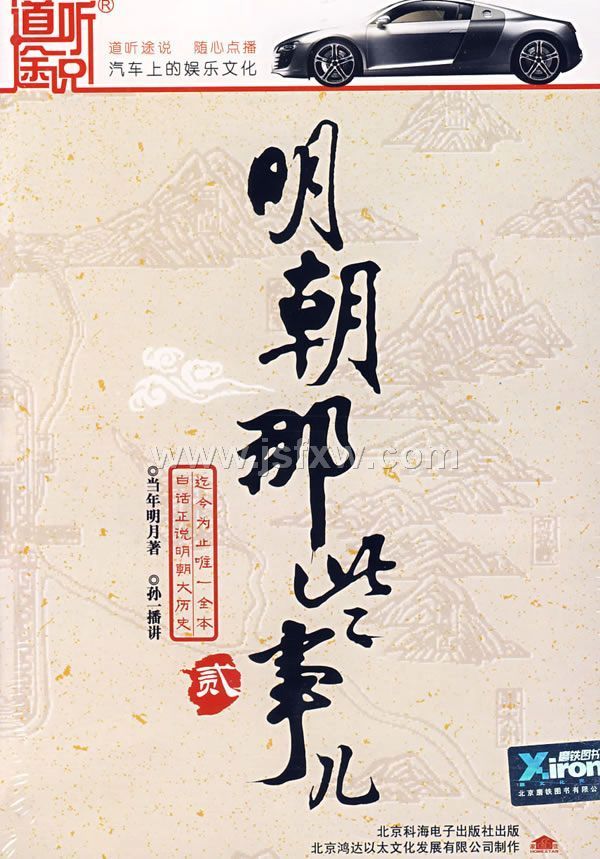 道听
途说®
道听途说 随心点播
汽车上的娱乐文化
明朝那些事儿
www.jsfxw.com
迄今为止唯一全本
白话正说明朝大历史
当年明月著 孙一播讲
贰
磨铁图书
X-iron
北京磨铁图书有限公
北京科海电子出版社出版
北京鸿达以太文化发展有限公司制作
HOMESTAR